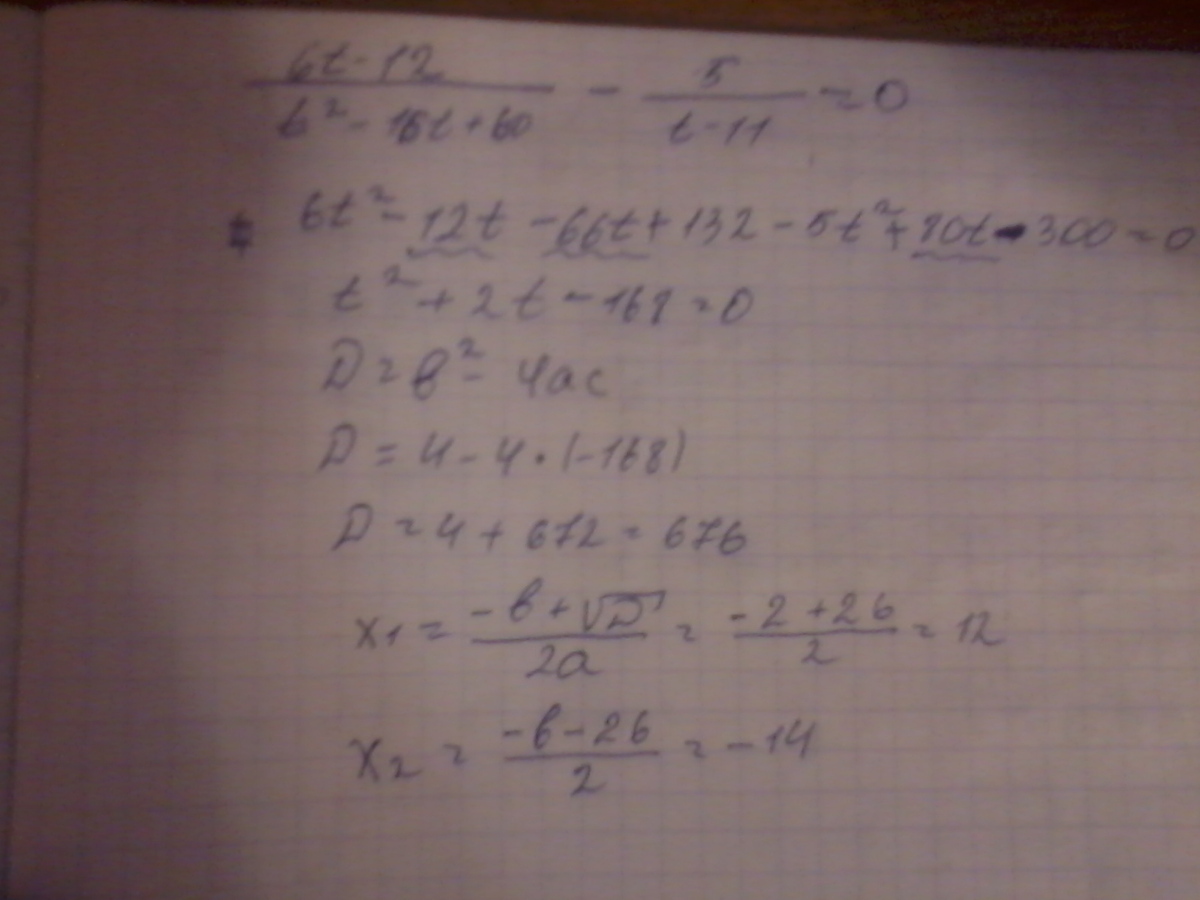 6t-12 / t² - 16t + 60 - 5 / t-11 = 0
6t² - 12t - 66t + 132 - 5t² + 80t - 300 = 0
t² + 2t - 168 = 0
D = в² - 4ac
D = 4 - 4 · (-168)
D = 4 + 672 = 676
x₁ = -в + √D / 2a = -2 + 26 / 2 = 12
x₂ = -в - 26 / 2 = -14